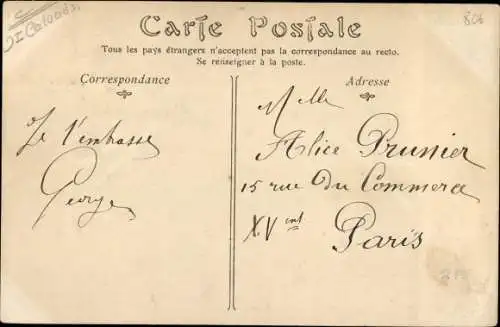 Calvados.
806
Carte Postale
Tous les pays étrangers n'acceptent pas la correspondance au recto.
Se renseigner à la poste.
Correspondance
Je t'embrasse
George
Adresse
Mlle
Alice Prunier
15 rue Du Commerce
XVent
Paris